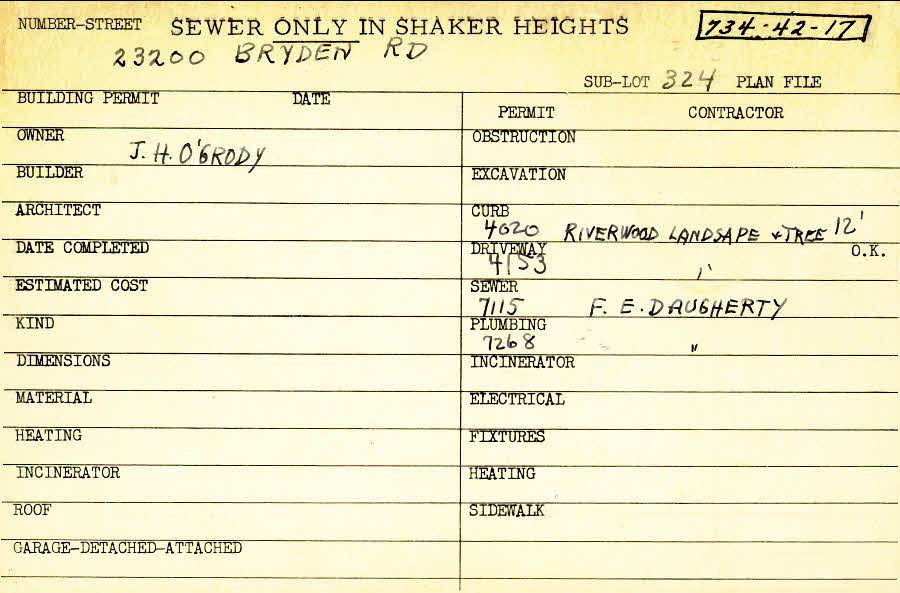 NUMBER-STREET SEWER ONLY IN SHAKER HEIGHTS 734-42-17
23200 BRYDEN RD
SUB-LOT 324 PLAN FILE
BUILDING PERMIT DATE
PERMIT CONTRACTOR
OWNER
J. H. O'GRODY
OBSTRUCTION
BUILDER
EXCAVATION
ARCHITECT
CURB
4020 RIVERWOOD LANDSAPE + TREE 12'
DATE COMPLETED
DRIVEWAY O.K.
4153 "
ESTIMATED COST
SEWER
7115 F. E. DAUGHERTY
KIND
PLUMBING
7268 "
DIMENSIONS
INCINERATOR
MATERIAL
ELECTRICAL
HEATING
FIXTURES
INCINERATOR
HEATING
ROOF
SIDEWALK
GARAGE-DETACHED-ATTACHED